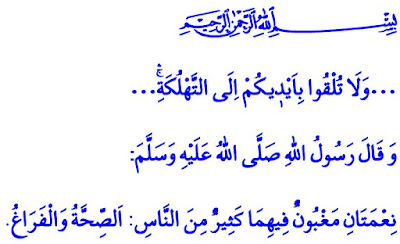 بِسْمِ اللهِ الرَّحْمٰنِ الرَّحِيمِ
...وَلَا تُلْقُوا بِاَيْدٖيكُمْ اِلَى التَّهْلُكَةِۚۛ...
وَ قَالَ رَسُولُ اللهِ صَلَّى اللهُ عَلَيْهِ وَسَلَّمَ:
نِعْمَتَانِ مَغْبُونٌ فِيهِمَا كَثِيرٌ مِنَ النَّاسِ: اَلصِّحَّةُ وَالْفَرَاغُ.